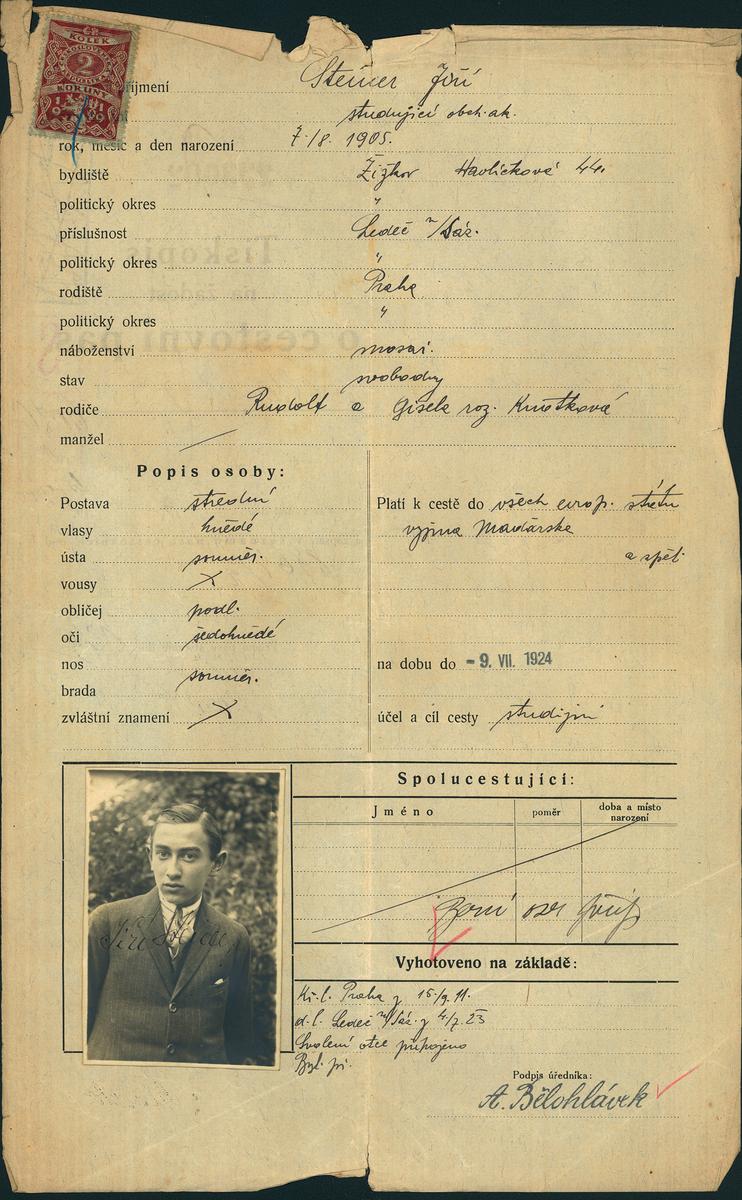 KOLEK
2
KORUNY
říjmení Steiner Jiří
studující obch. ak.
rok, měsíc a den narození 7./8. 1905.
bydliště Žižkov Havlíčkova 44.
politický okres "
příslušnost Ledeč n/Sáz.
politický okres "
rodiště Praha
politický okres "
náboženství mosai.
stav svobodný
rodiče Rudolf a Gisela roz.
manžel
Popis osoby:
Postava střední
vlasy hnědé
ústa souměr.
vousy X
obličej podl.
oči šedohnědé
nos
brada souměr.
zvláštní znamení X
Platí k cestě do všech evrop. států
vyjma Maďarska
a zpět
na dobu do - 9. VII. 1924
účel a cíl cesty studijní
Spolucestující:
Jméno poměr doba a místo narození
Jiří Steiner
Vyhotoveno na základě:
Kř. l. Praha z 15./9. 11.
d. l. Ledeč n/Sáz. z 4./7. 23
Svolení otce připojeno
Podpis úředníka:
A. Bělohlávek